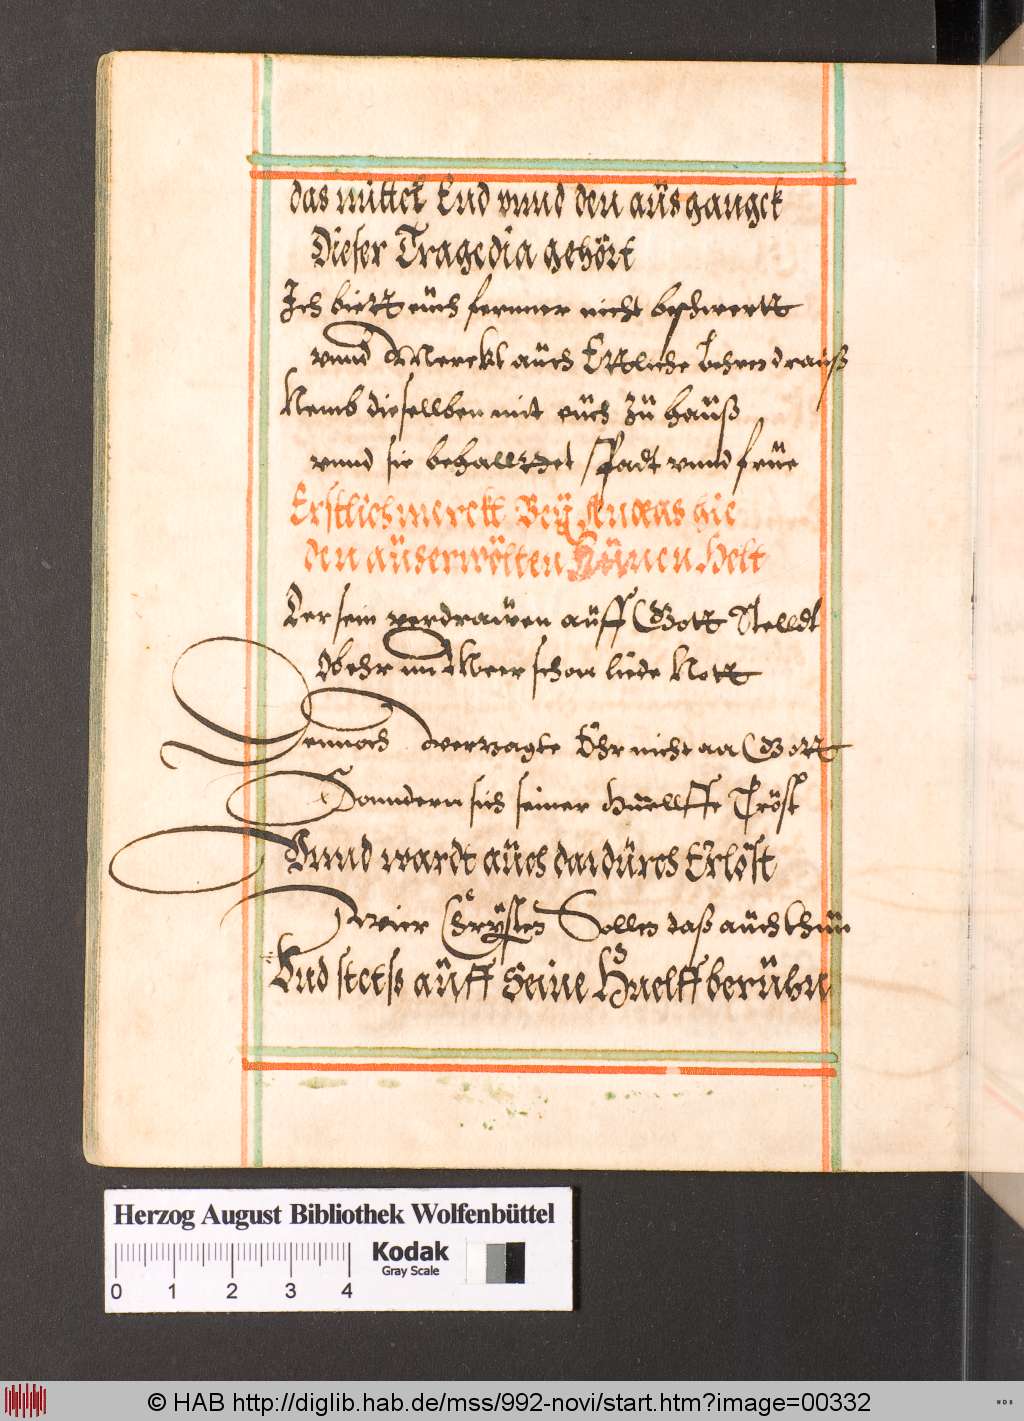 das mittel End vnnd den aüsgangck
Dieser Tragedia gehört
Ich bitt eüch ferner nicht beschwertt
vnnd Merckt aüch Ettliche Lehren drauß
Nemb diesellben mit eüch Zü haüß
vnnd sie behalltet spadt vnnd früe
Erstlich merckt Beÿ Aneas hie
den aüserwölten Künen Helt
Der sein verdrawen aüff Gott stelldt
Obehr im Meer schon liede Nott
Dennoch verzagte Ehr nicht an Gott
Sonndern sich seiner Huellffe Tröst
Vnnd wardt aüch dardürch Erlöst
wier Chrÿsten Sollen daß aüch thün
Vnd stetß aüff Seine Huelff berühn
Herzog August Bibliothek Wolfenbüttel
Kodak
Gray Scale
0 1 2 3 4
© HAB http://diglib.hab.de/mss/992-novi/start.htm?image=00332